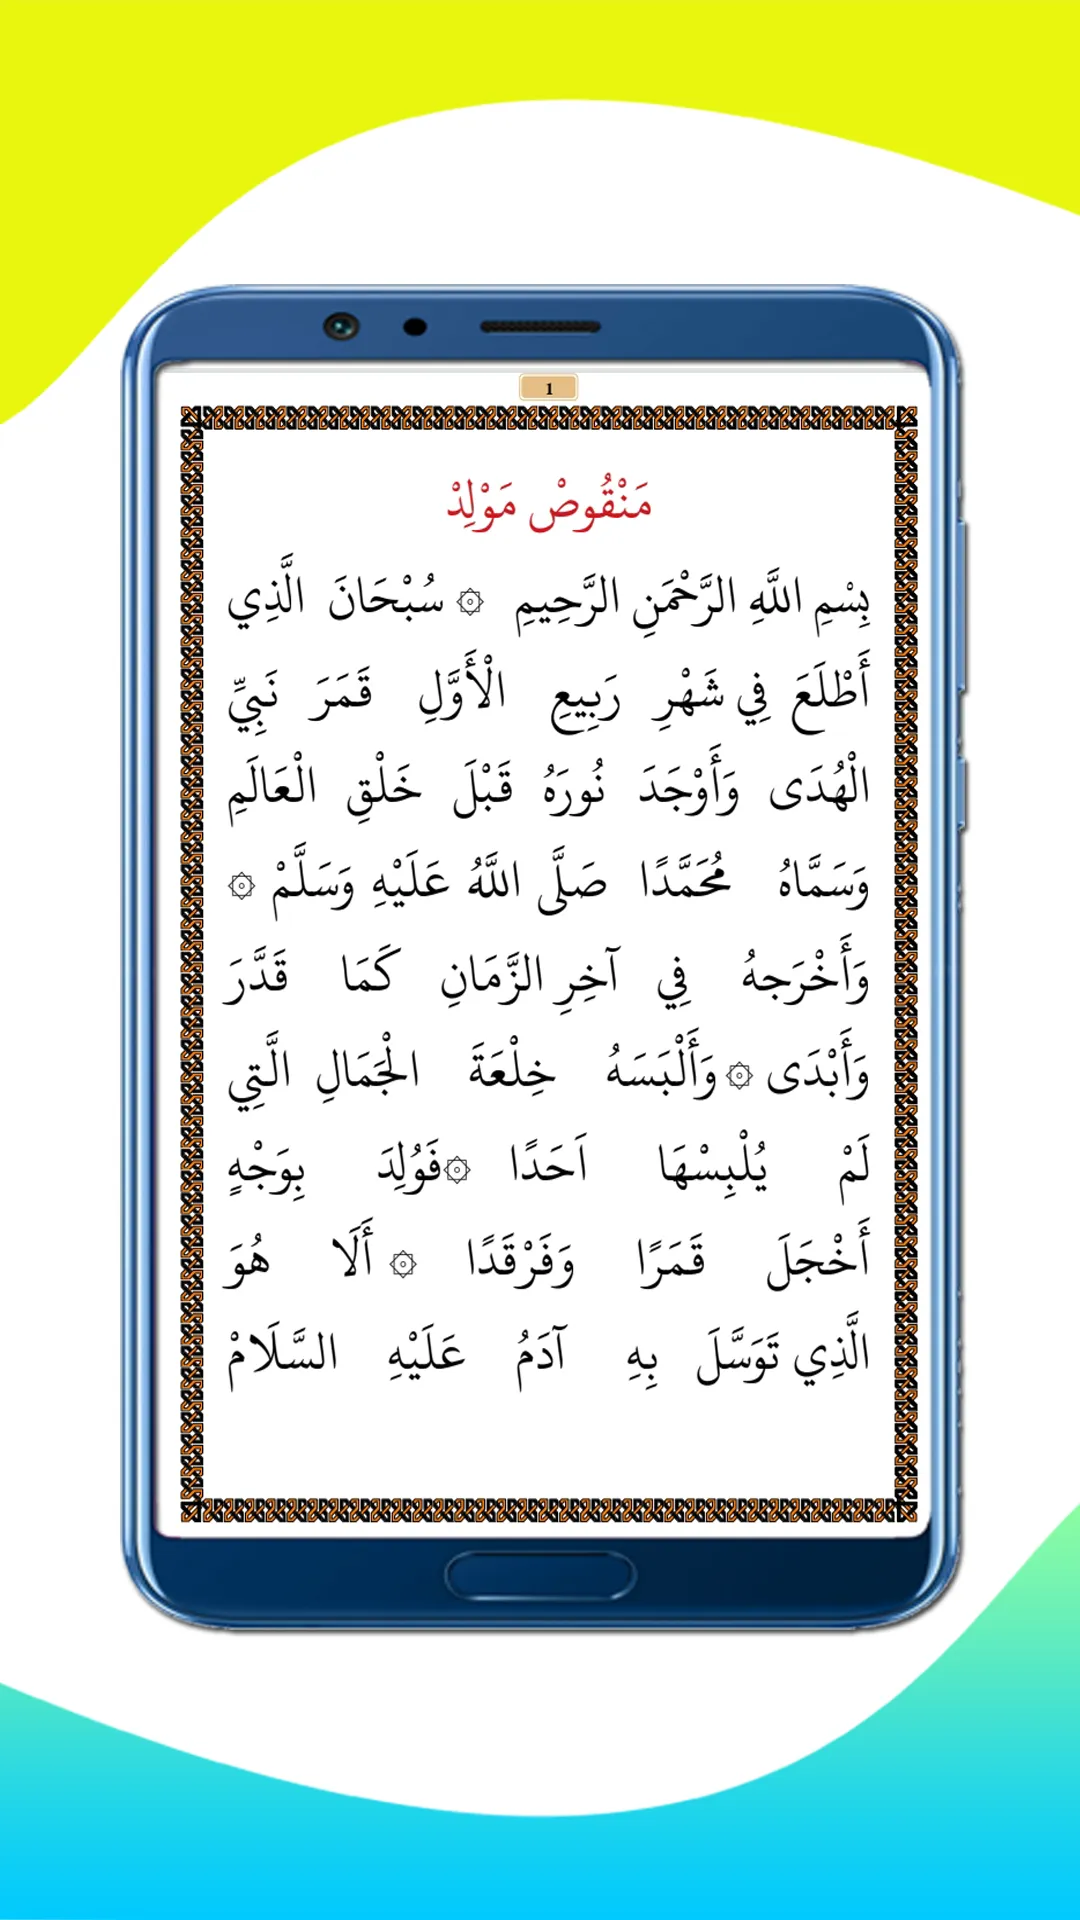 1
مَنْقُوصْ مَوْلِدْ
بِسْمِ اللَّهِ الرَّحْمَنِ الرَّحِيمِ ۞ سُبْحَانَ الَّذِي
أَطْلَعَ فِي شَهْرِ رَبِيعِ الْأَوَّلِ قَمَرَ نَبِيِّ
الْهُدَى وَأَوْجَدَ نُورَهُ قَبْلَ خَلْقِ الْعَالَمِ
وَسَمَّاهُ مُحَمَّدًا صَلَّى اللَّهُ عَلَيْهِ وَسَلَّمْ ۞
وَأَخْرَجهُ فِي آخِرِ الزَّمَانِ كَمَا قَدَّرَ
وَأَبْدَى ۞ وَأَلْبَسَهُ خِلْعَةَ الْجَمَالِ الَّتِي
لَمْ يُلْبِسْهَا اَحَدًا ۞فَوُلِدَ بِوَجْهٍ
أَخْجَلَ قَمَرًا وَفَرْقَدًا ۞ أَلَا هُوَ
الَّذِي تَوَسَّلَ بِهِ آدَمُ عَلَيْهِ السَّلَامْ